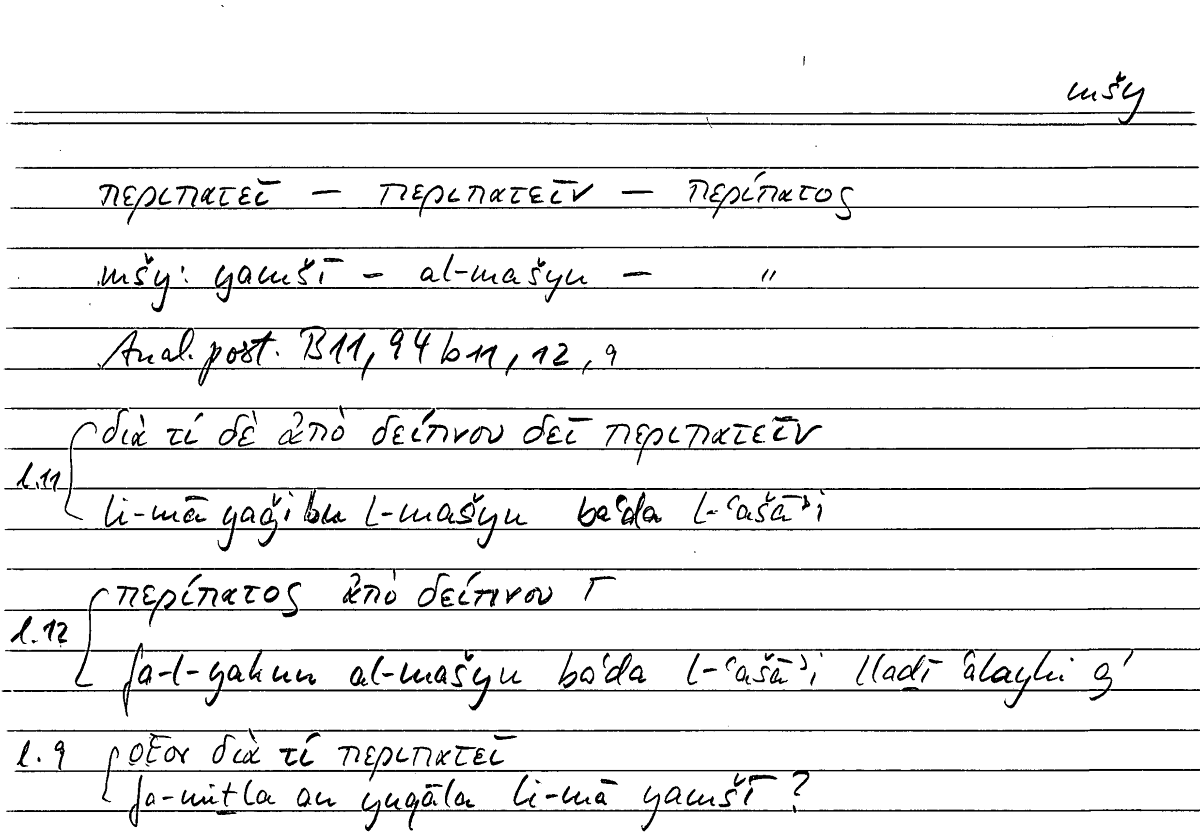 mšy
περιπατεῖ – περιπατεῖν – περίπατος
mšy: yamšī – al-mašyu – "
Anal. post. B11, 94b11, 12, 9
διὰ τί δὲ ἀπὸ δείπνου δεῖ περιπατεῖν
l.11
li-mā yaǧibu l-mašyu baʿda l-ʿašāʾi
περίπατος ἀπὸ δείπνου Γ
l.12
fa-l-yakun al-mašyu baʿda l-ʿašāʾi lladī ʿalayhi
l.9 οἷον διὰ τί περιπατεῖ
fa-miṯla an yuqāla li-mā yamšī?